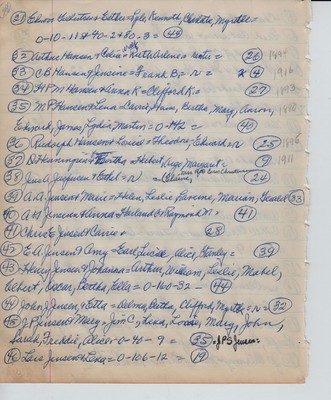 (31) Edwin Gustafson + Esther, Lyle, Kenneth, Charlotte, Myrtle =
0-10-11+40-2+80-3 = (49)
(32) Arthur Hansen + Celia = Ruth Arlene = (26) 1944
(33) C.B. Hansen + Jensine = Frank B. = R = * (4) 1916
(34) H.P.M. Hansen + Anna K = Clifford K = (27)
(35) M.P. Hansen + Lena = Carrie, Ann, Bertha, Mary, Aaron,
Edward, James, Lydia, Martin = 0-142 = (40)
(36) Rudolph Hansen + Louise = Theodore, Edward = R (25)
(37) D. Henningsen + Bertha = Hubert, Margaret = (9) 1911
(38) James Jacobsen + Ethel = R = Elaine, (24)
(39) A.A. Jensen + Marie = Helen, Leslie, Marian, (23)
(40) A.M. Jensen + Anna = Harland + Raymond M = (41)
(41) Chris Jensen + Carrie = (28)
(42) E.A. Jensen + Amy = Earl, Lucille, Alice, Stanley = (39)
(43) Henry Jensen + Johanna = Arthur, William, Leslie, Mabel,
Albert, Oscar, Bertha, Ella = 0-160-32 - (44)
(44) John J. Jensen + Etta = Delmer, Bertha, Clifford, Myrtle = R = (32)
(45) J.P. Jensen + Mary = Jim C., Lena, Louise, Mary, John,
Sarah, Freddie, Alice = 0-40-9 = (35) = J.P.S. Jensen =
(46) Lars Jensen + Lena = 0-106-12 = (19)